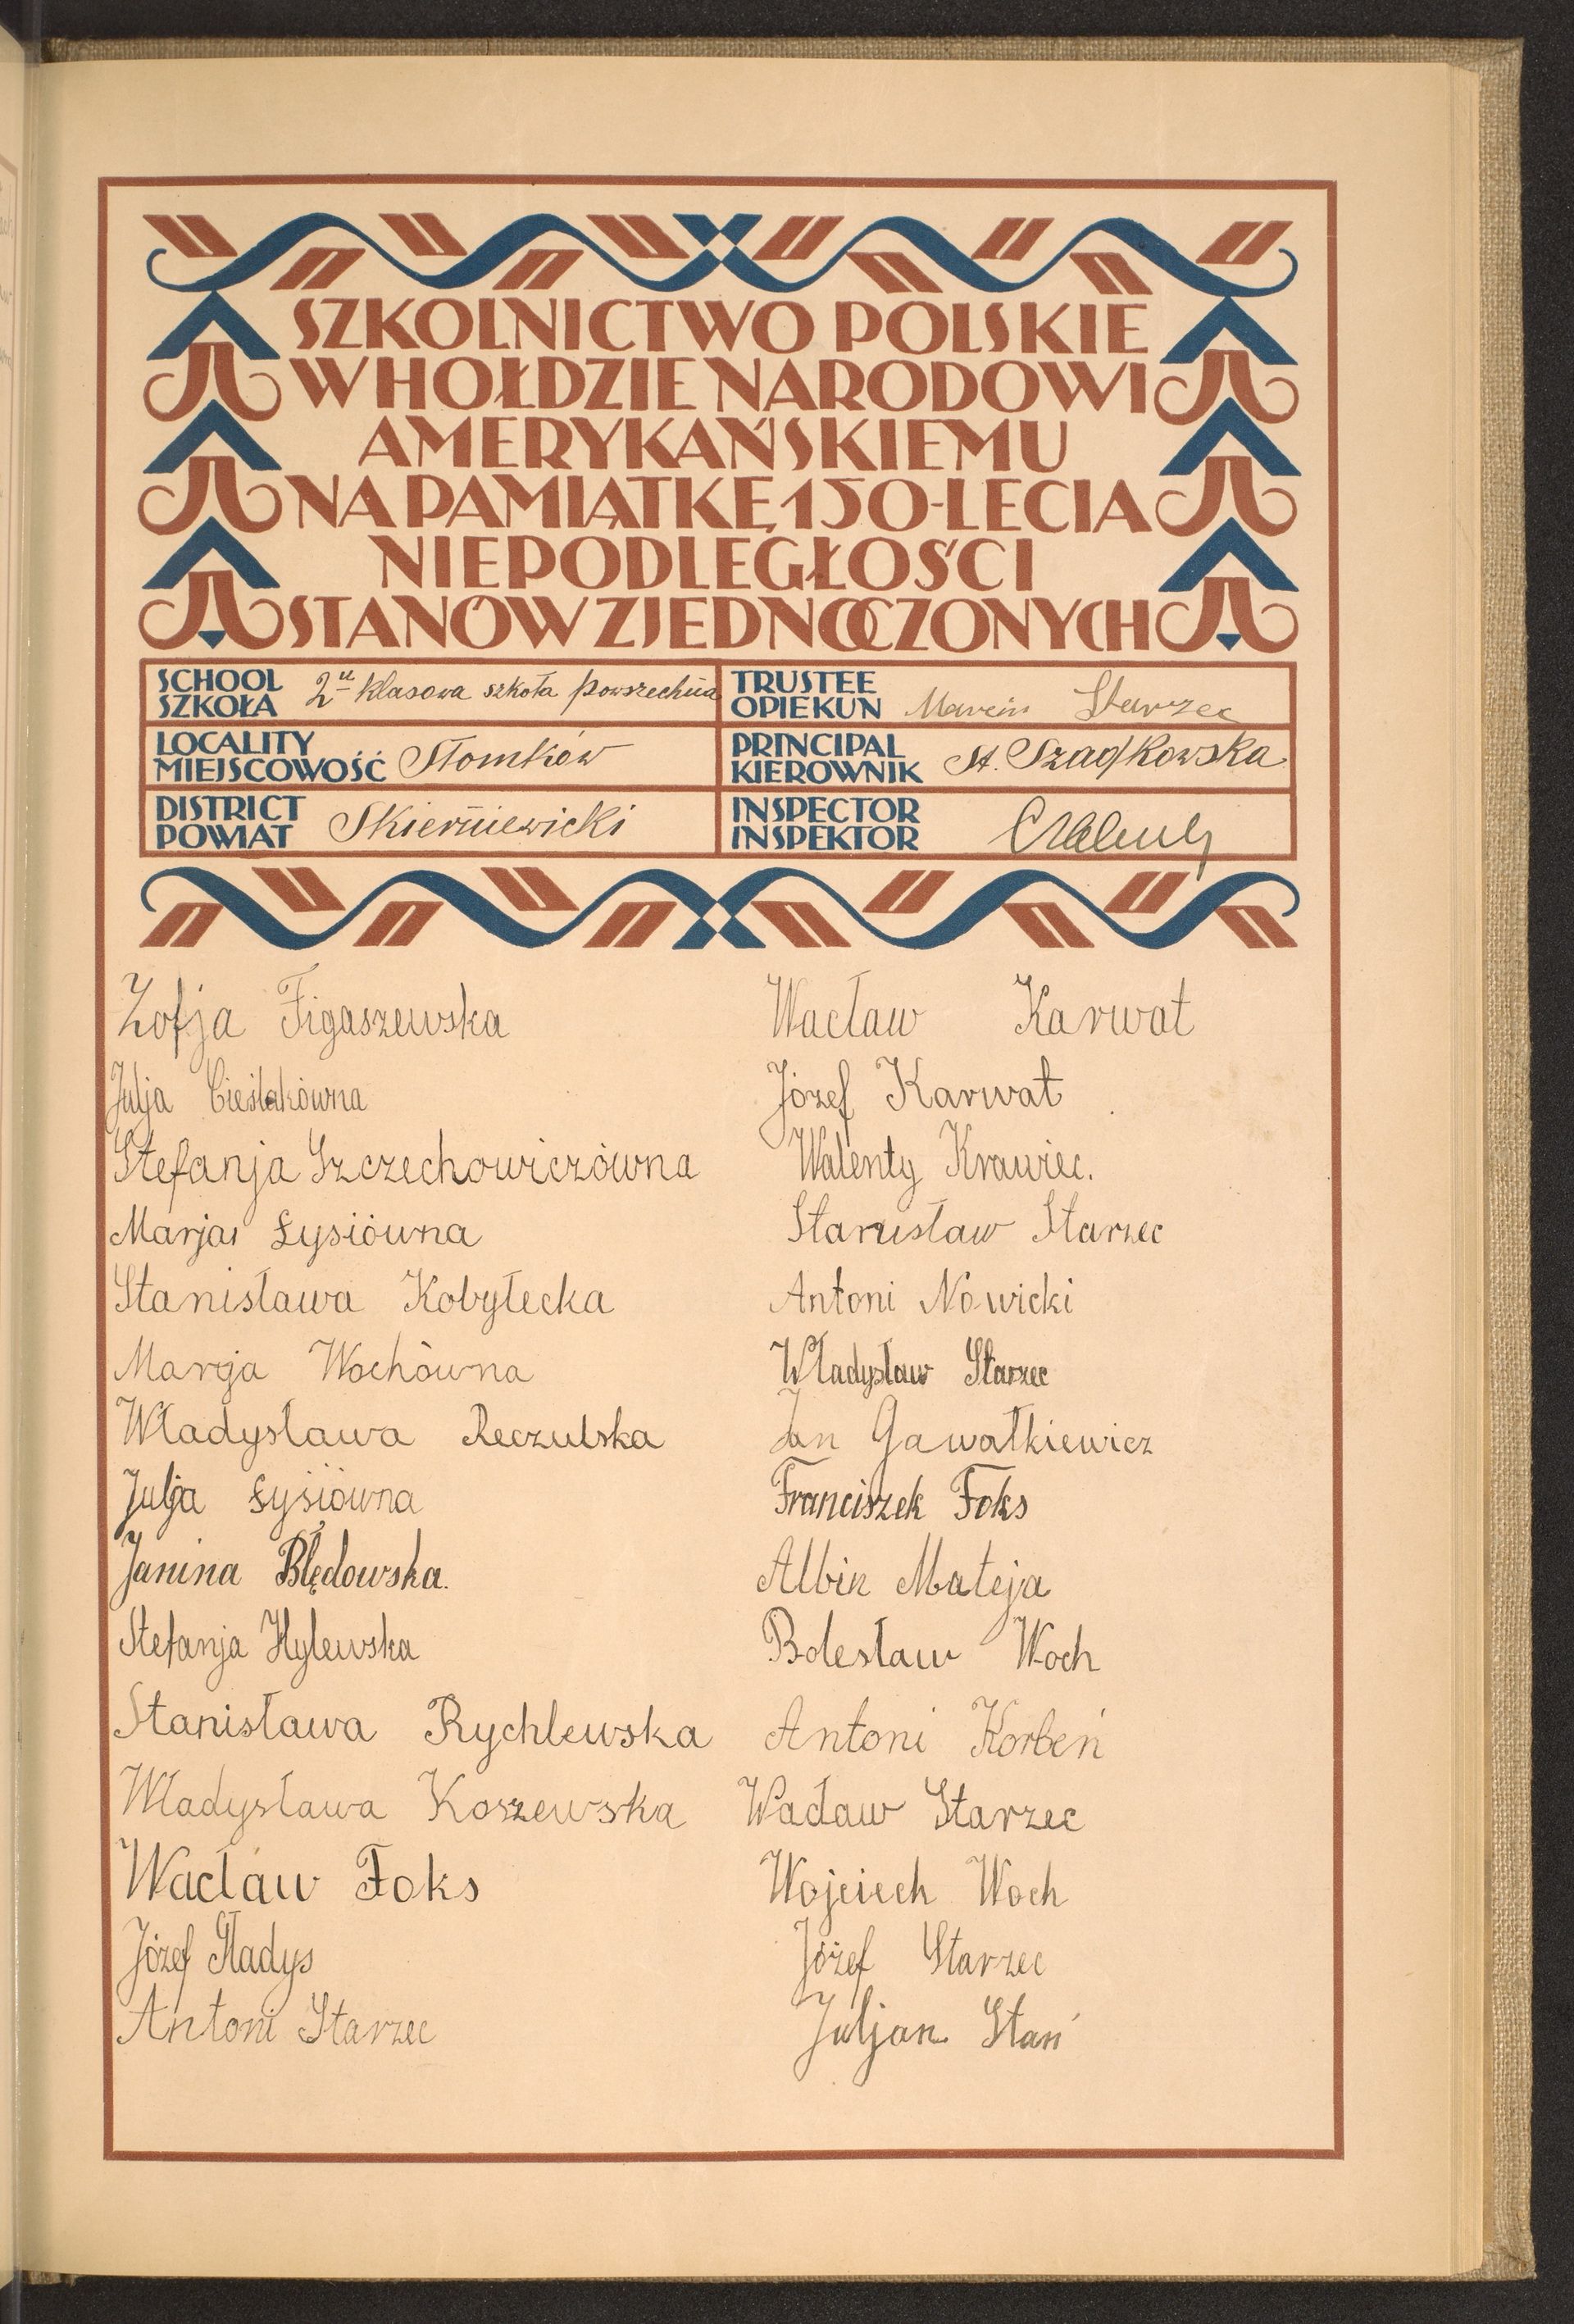 SZKOLNICTWO POLSKIE
W HOŁDZIE NARODOWI
AMERYKAŃSKIEMU
NA PAMIĄTKĘ 150-LECIA
NIEPODLEGŁOŚCI
STANÓW ZJEDNOCZONYCH
SCHOOL
SZKOŁA 2u klasowa szkoła powszechna
TRUSTEE
OPIEKUN Marcin Starzec
LOCALITY
MIEJSCOWOŚĆ Słomków
PRINCIPAL
KIEROWNIK St. Szadkowska
DISTRICT
POWIAT Skierniewicki
INSPECTOR
INSPEKTOR
Zofja Figaszewska
Julja Cieślakówna
Stefanja Szczechowiczówna
Marja Łysiówna
Stanisława Kobyłecka
Marja Wochówna
Władysława Reczulska
Julja Łysiówna
Janina Błędowska.
Stefanja Hylewska
Stanisława Rychlewska
Władysława Koszewska
Wacław Foks
Józef Gładys
Antoni Starzec
Wacław Karwat
Józef Karwat
Walenty Krawiec.
Stanisław Starzec
Antoni Nowicki
Władysław Starzec
Jan Gawałkiewicz
Franciszek Foks
Albin Mateja
Bolesław Woch
Antoni Korbeń
Wacław Starzec
Wojciech Woch
Józef Starzec
Juljan Stań